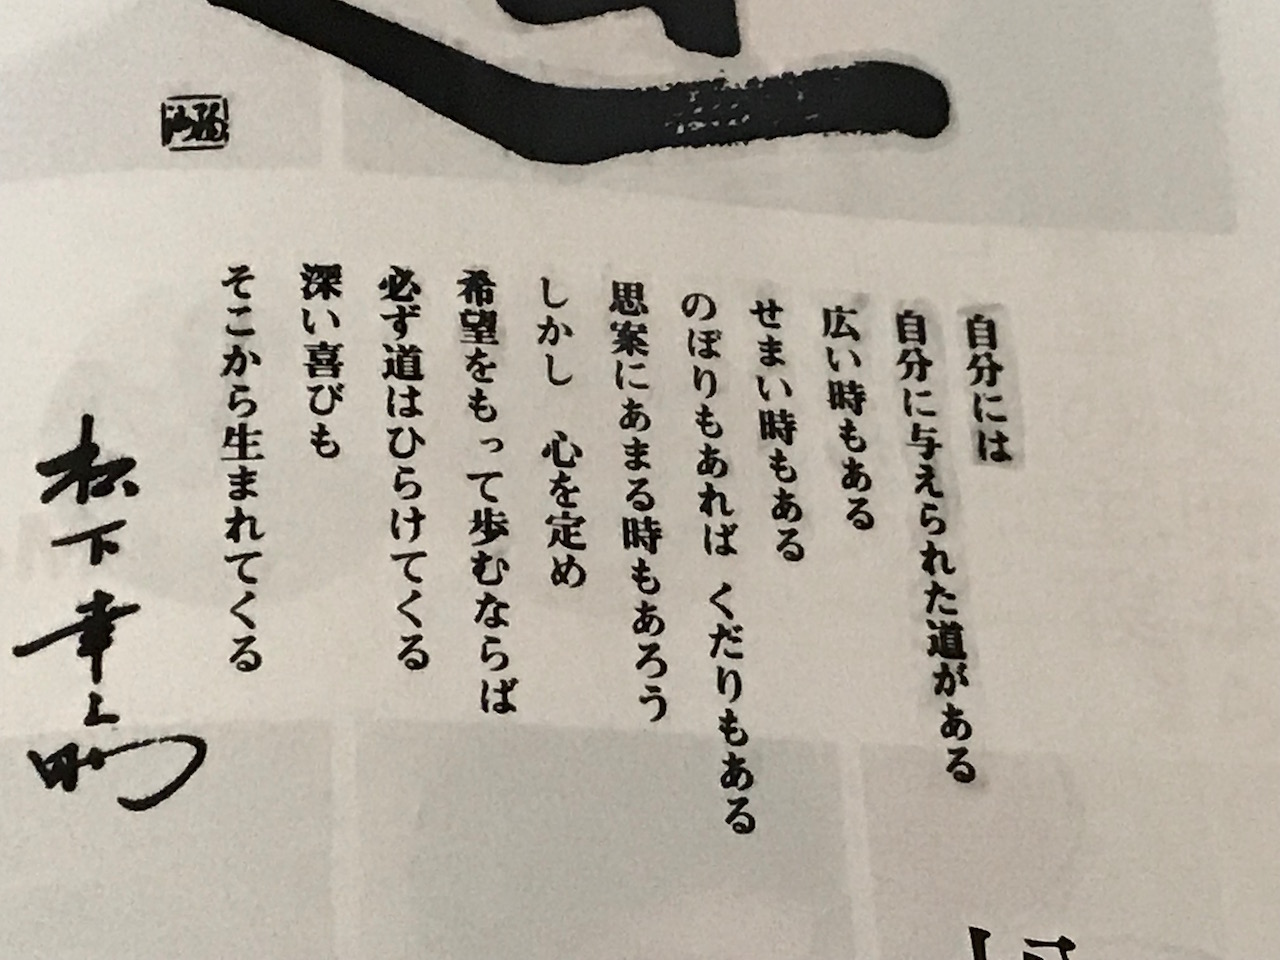 自分には
自分に与えられた道がある
広い時もある
せまい時もある
のぼりもあれば くだりもある
思案にあまる時もあろう
しかし 心を定め
希望をもって歩むならば
必ず道はひらけてくる
深い喜びも
そこから生まれてくる
松下幸之助